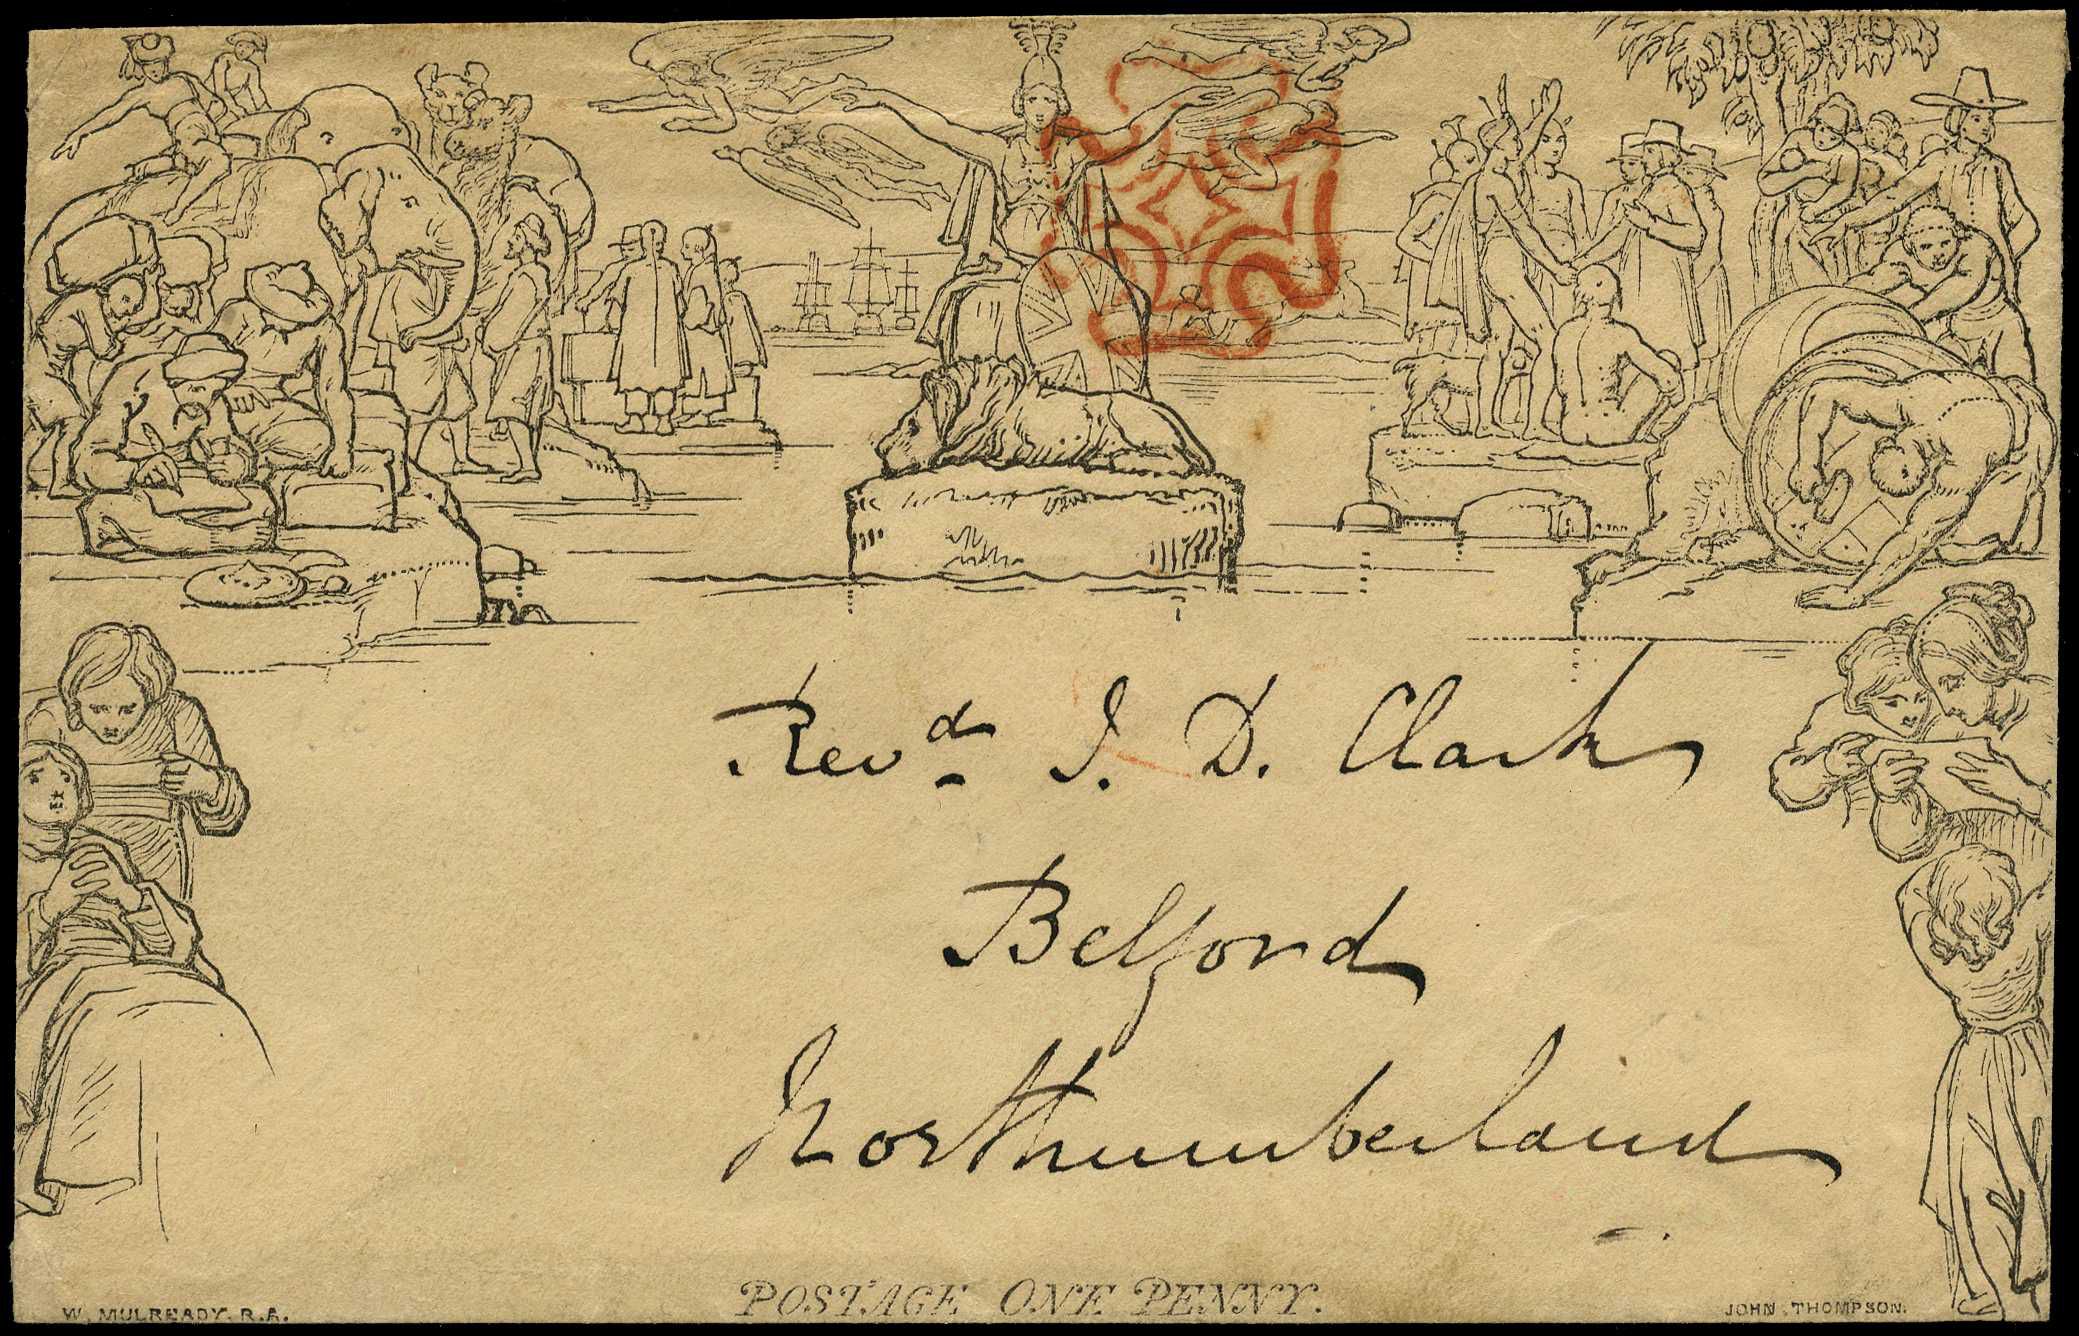 Revd J. D. Clark
Belford
Northumberland
POSTAGE ONE PENNY.
W. MULREADY. R.A.
JOHN THOMPSON.